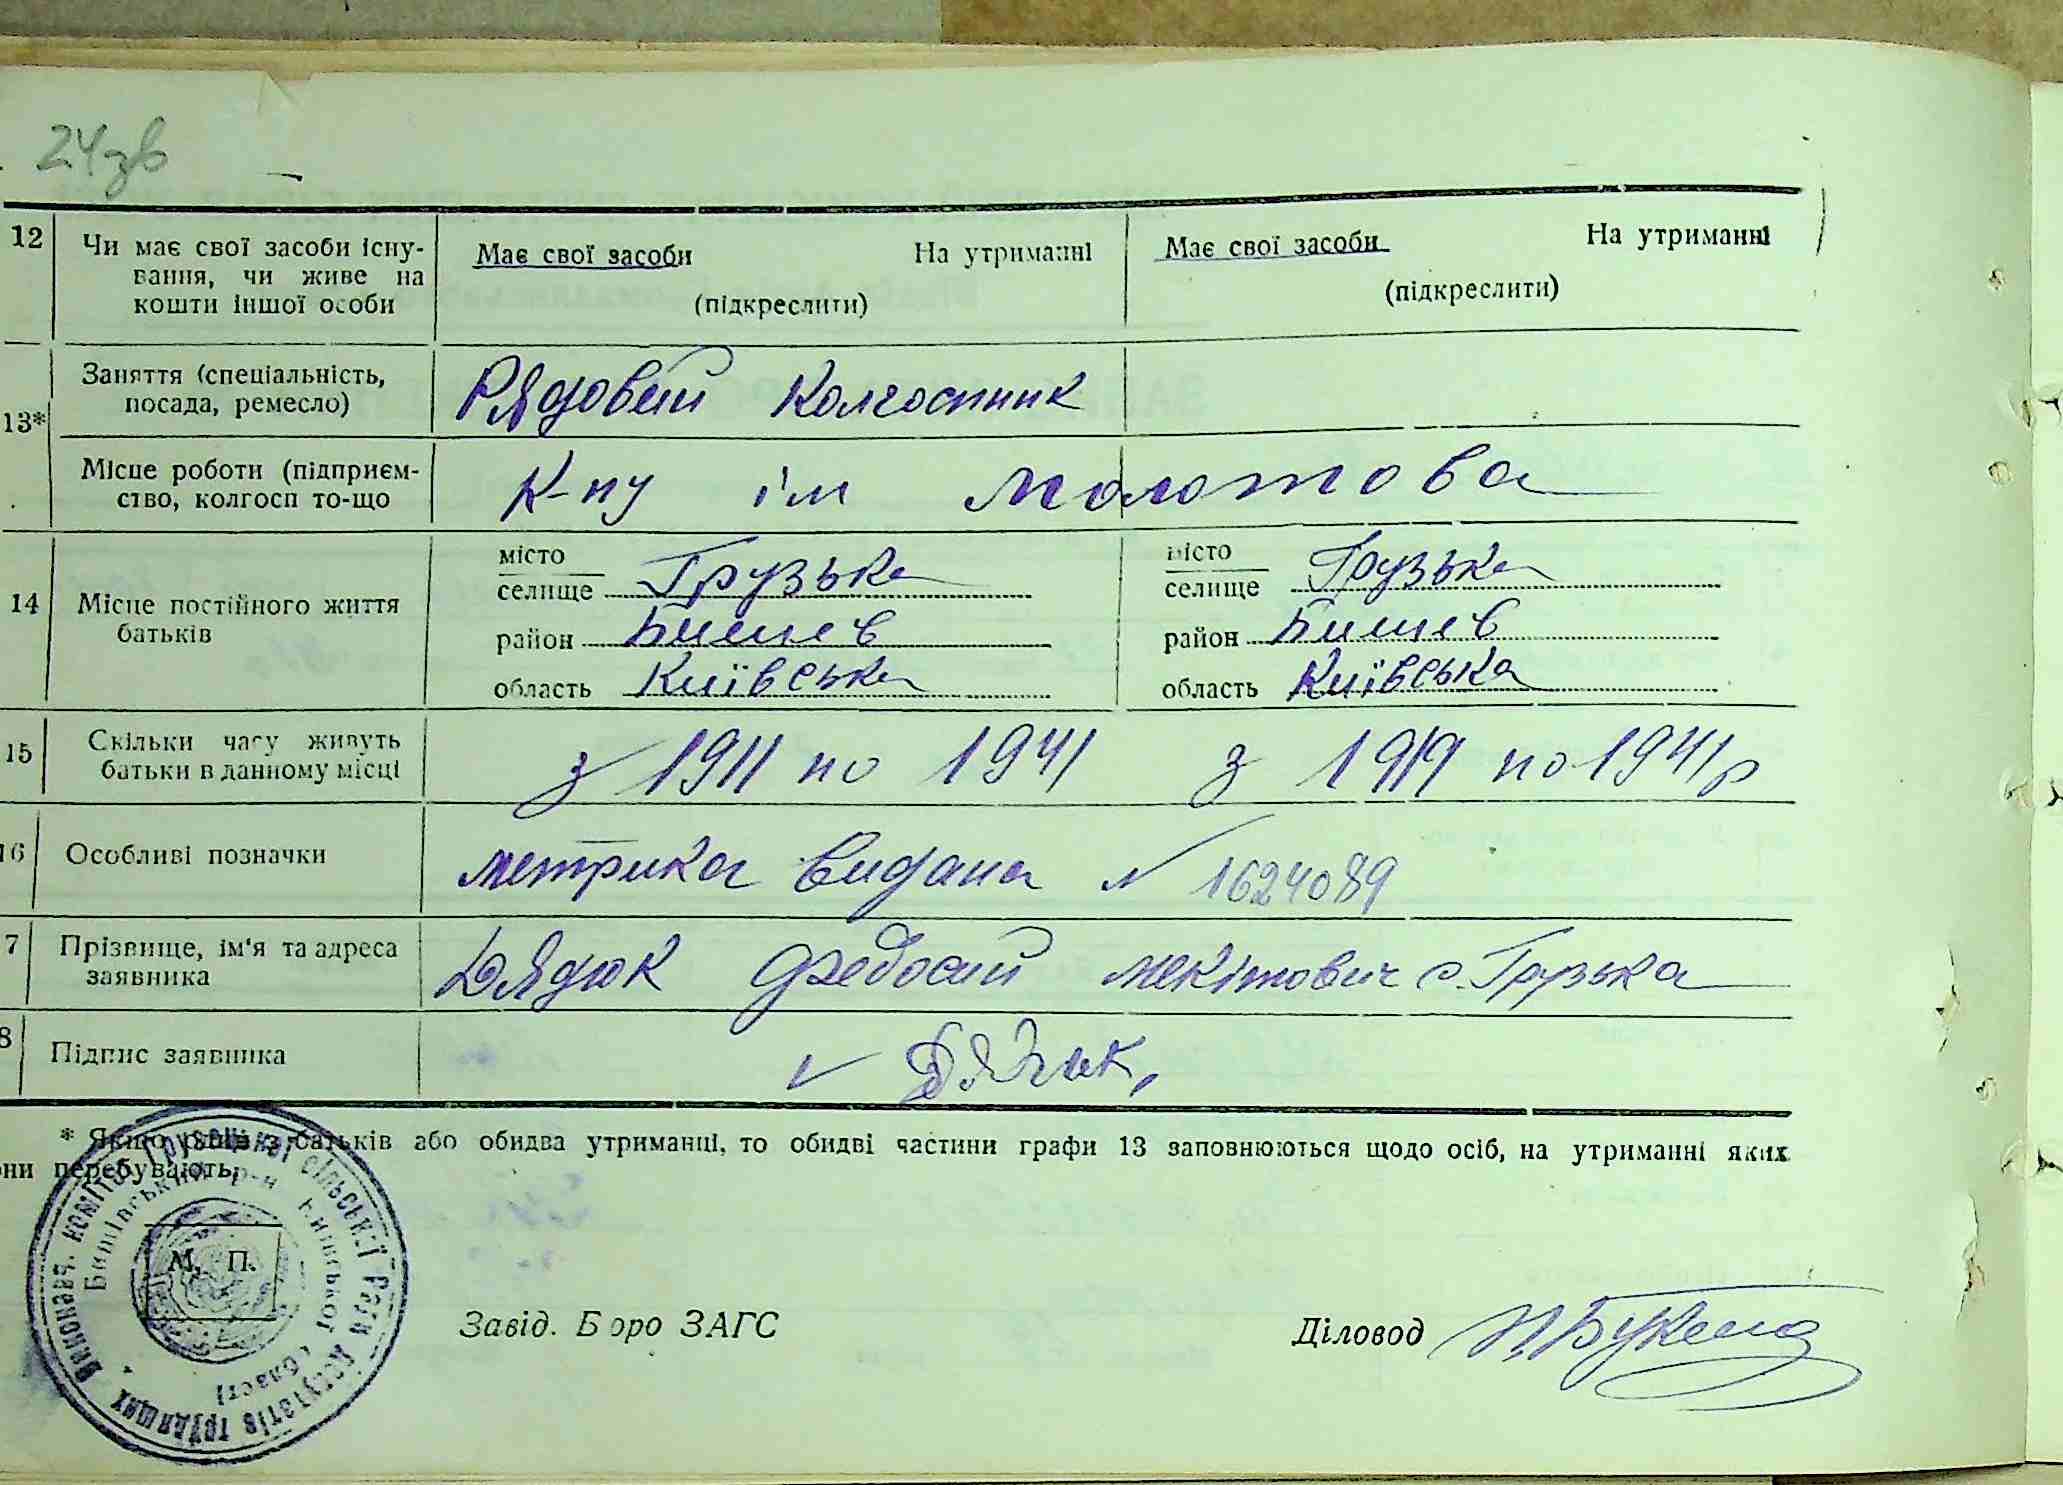 24зв
12 Чи має свої засоби існу-
вання, чи живе на
кошти іншої особи
Має свої засоби На утриманні
(підкреслити)
Має свої засоби На утриманні
(підкреслити)
13* Заняття (спеціальність,
посада, ремесло)
Рядовий колгоспник
Місце роботи (підприєм-
ство, колгосп то-що
К-пу ім Молотова
14 Місце постійного життя
батьків
місто
селище Грузька
район Бишев
область Київська
місто
селище Грузька
район Бишев
область Київська
15 Скільки часу живуть
батьки в данному місці
з 1911 по 1941 з 1919 по 1941 р
16 Особливі позначки
метрика видана № 1624089
7 Прізвище, ім'я та адреса
заявника
Дядюк Федосий Мекітович с. Грузька
8 Підпис заявника
* Якщо один з батьків або обидва утриманці, то обидві частини графи 13 заповнюються щодо осіб, на утриманні яких
они перебувають.
Виконавч. комітет Грузецької сільської Ради Депутатів трудящих
Бишівський р-н Київської області
М. П.
Завід. Бюро ЗАГС
Діловод